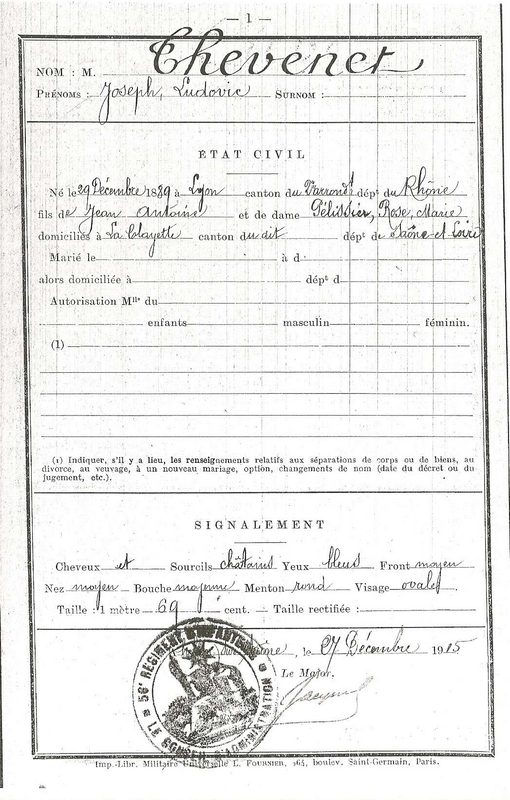 — 1 —
NOM : M. Thevenet
PRÉNOMS : Joseph, Ludovic SURNOM :
ÉTAT CIVIL
Né le 29 Décembre 1889 à Lyon canton du dépt du Rhône
fils de Jean Antoine et de dame Pélissier, Rose, Marie
domiciliés à La Clayette canton du dit dépt de Saône et Loire
Marié le à d
alors domiciliée à dépt d
Autorisation Mlle du
enfants masculin féminin.
(1)
(1) Indiquer, s'il y a lieu, les renseignements relatifs aux séparations de corps ou de biens, au
divorce, au veuvage, à un nouveau mariage, option, changements de nom (date du décret ou du
jugement, etc.).
SIGNALEMENT
Cheveux et Sourcils châtains Yeux bleus Front moyen
Nez moyen Bouche moyenne Menton rond Visage ovale
Taille : 1 mètre 69 cent. Taille rectifiée :
Saône, le 27 Décembre 1915
Le Major,
56e RÉGIMENT D'INFANTERIE
LE CONSEIL D'ADMINISTRATION
Imp.-Libr. Militaire Universelle L. FOURNIER, 264, boulev. Saint-Germain, Paris.